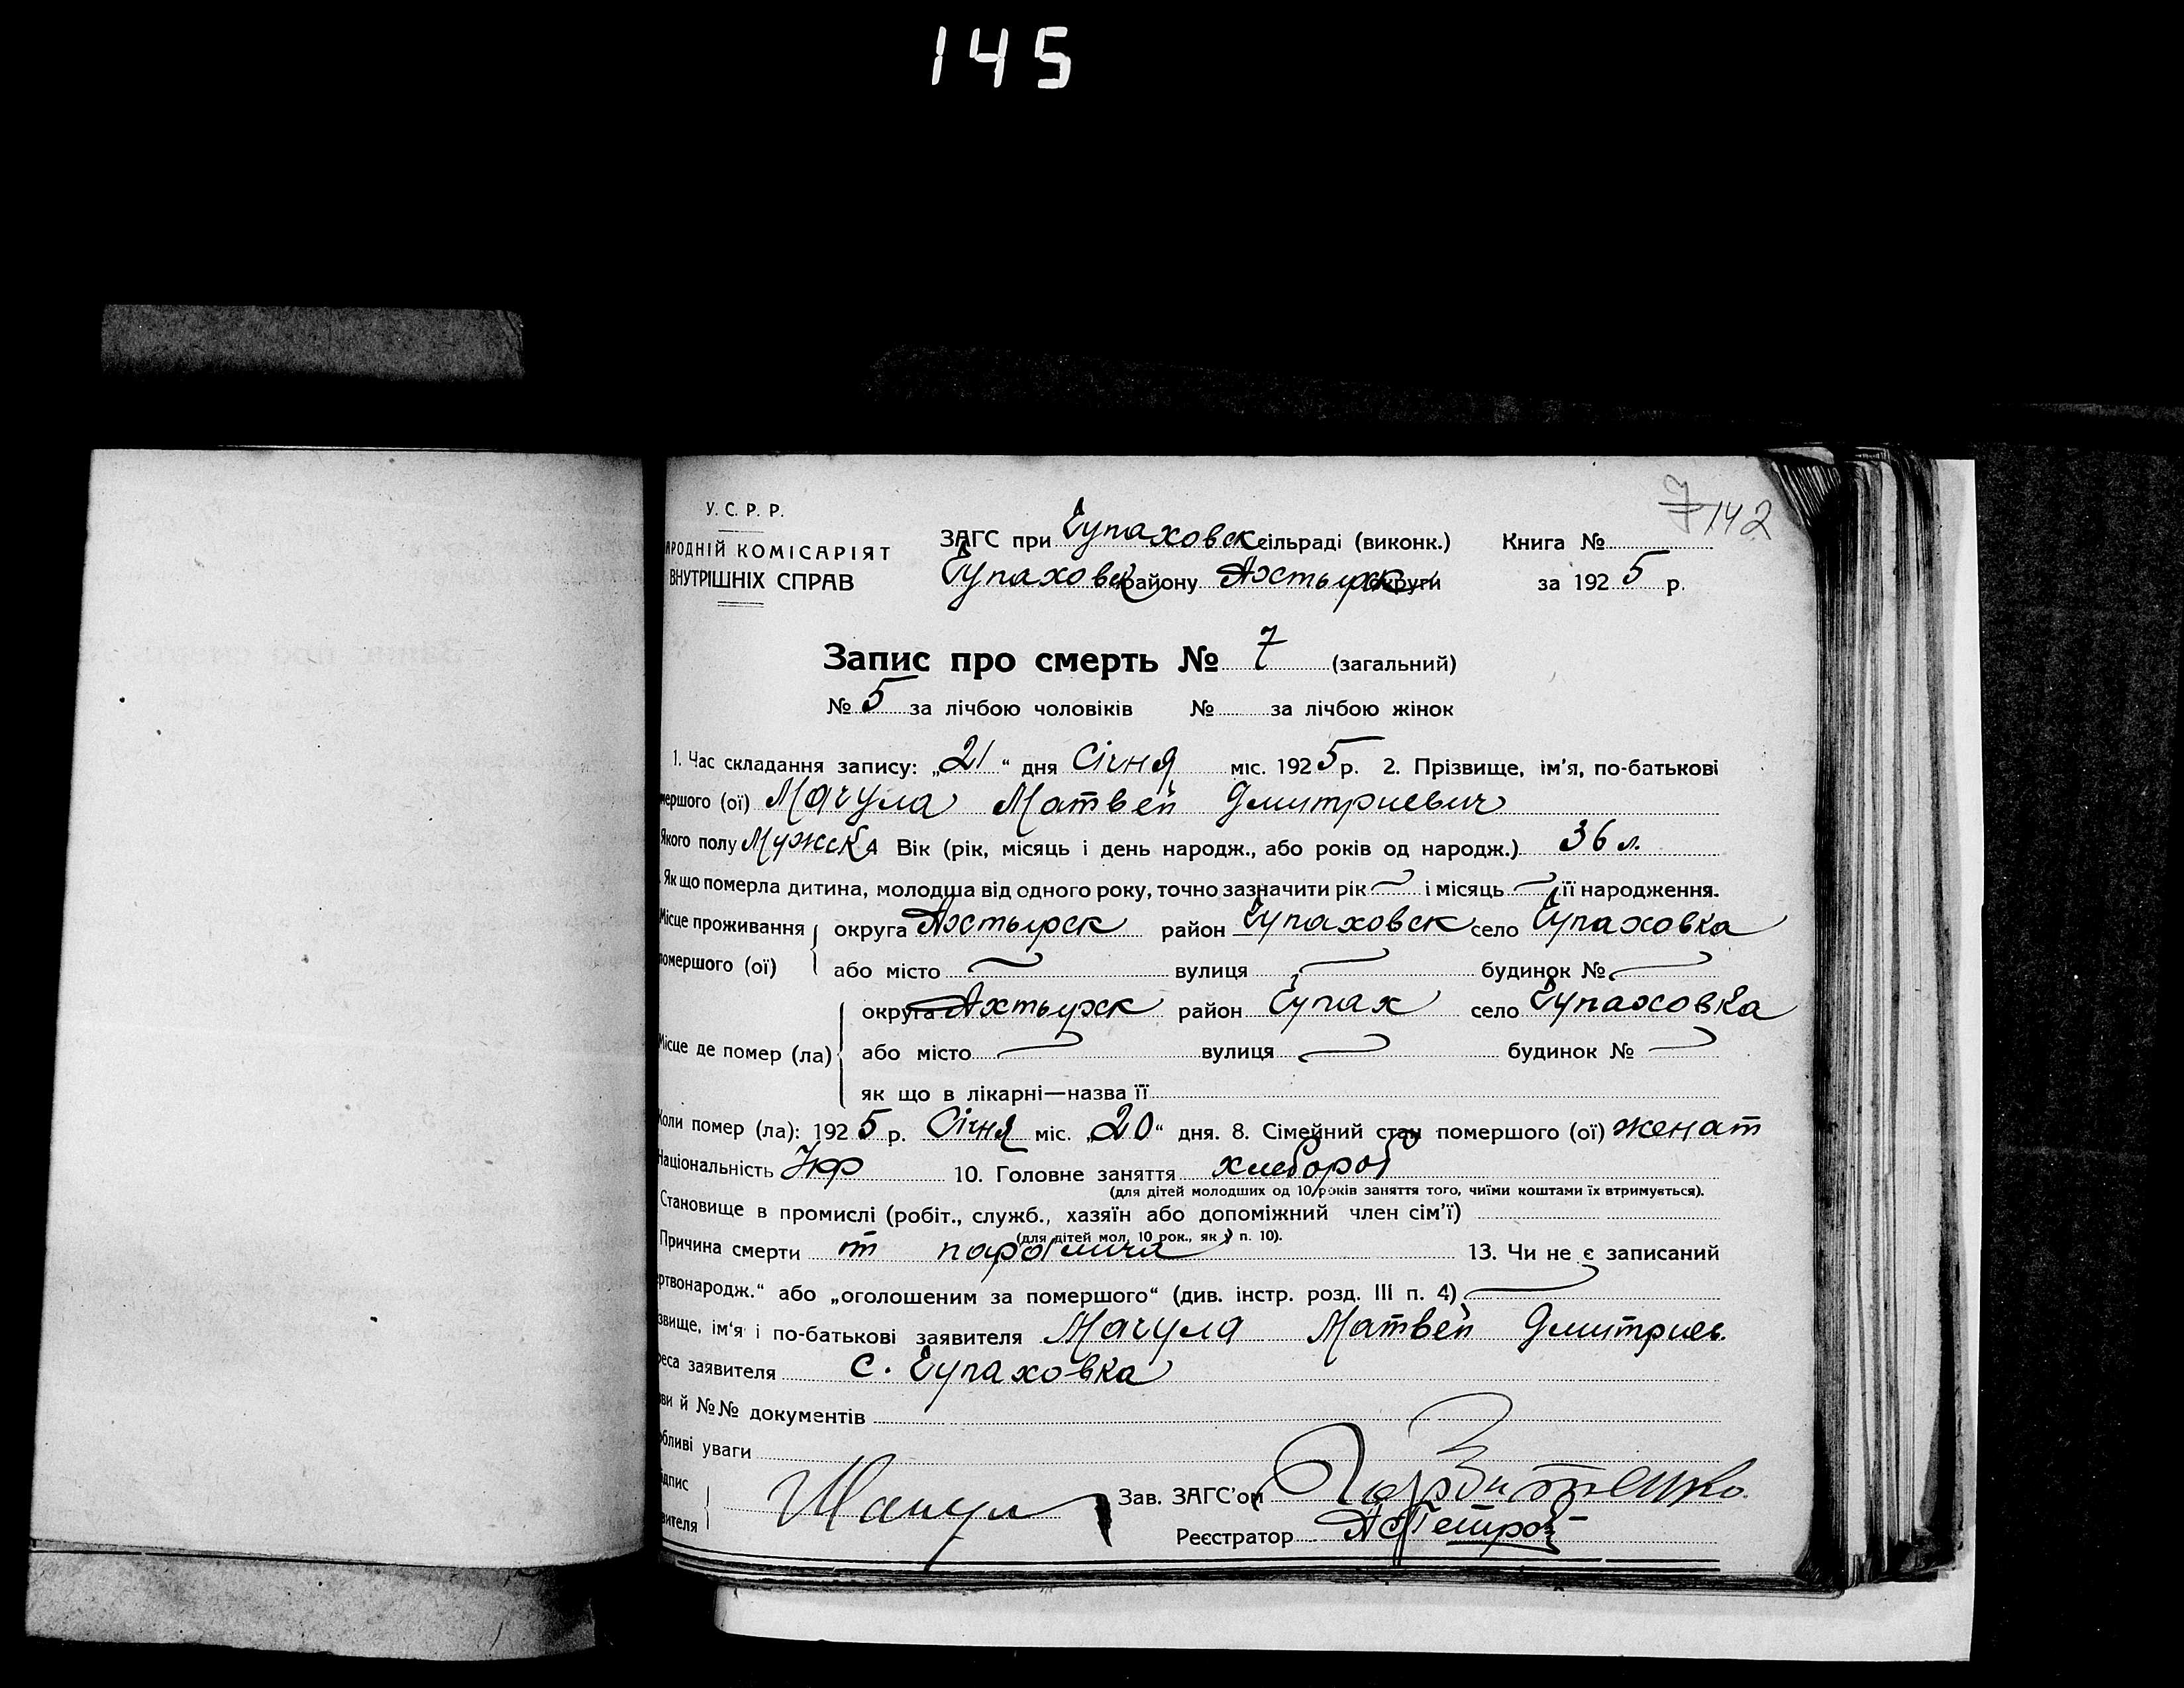 145
7 142
У. С. Р. Р.
АРОДНІЙ КОМІСАРІЯТ
ВНУТРІШНІХ СПРАВ
ЗАГС при Чупаховск сільраді (виконк.) Книга №
Чупаховск району Ахтырск округи за 1925 р.
Запис про смерть № 7 (загальний)
№ 5 за лічбою чоловіків № за лічбою жінок
1. Час складання запису: „21“ дня Січня міс. 1925 р. 2. Прізвище, ім'я, по-батькові
мершого (ої) Мачула Матвей Дмитриевич
Якого полу Мужск. 4 Вік (рік, місяць і день народж., або років од народж.) 36 л.
. Як що померла дитина, молодша від одного року, точно зазначити рік і місяць її народження.
Місце проживання округа Ахтырск район Чупаховск село Чупаховка
помершого (ої) або місто вулиця будинок №
округа Ахтырск район Чупах село Чупаховка
Місце де помер (ла) або місто вулиця будинок №
як що в лікарні—назва її
Коли помер (ла): 1925 р. Січня міс. „20“ дня. 8. Сімейний стан помершого (ої) женат
Національність Укр 10. Головне заняття хлебороб
(для дітей молодших од 10 років заняття того, чиїми коштами їх втримується).
Становище в промислі (робіт., служб., хазяїн або допоміжний член сім'ї)
(для дітей мол. 10 рок., як у п. 10).
Причина смерти 13. Чи не є записаний
ертвонародж.“ або „оголошеним за помершого“ (див. інстр. розд. III п. 4)
звище, ім'я і по-батькові заявителя Мачула Матвей Дмитриев.
реса заявителя с. Чупаховка
зви й №№ документів
обливі уваги
ідпис
вителя Мачула Зав. ЗАГС'ом
Реєстратор